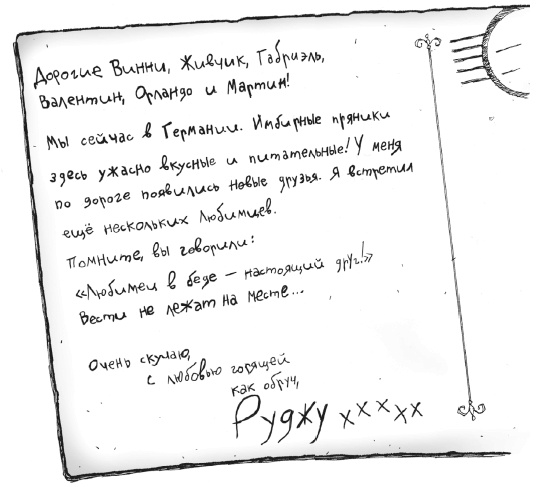 Дорогие Винни, Живчик, Габриэль,
Валентин, Орландо и Мартин!
Мы сейчас в Германии. Имбирные пряники
здесь ужасно вкусные и питательные! У меня
по дороге появились новые друзья. Я встретил
ещё нескольких любимцев.
Помните, вы говорили:
«Любимец в беде – настоящий друг!»
Вести не лежат на месте...
Очень скучаю,
с любовью горящей
как обруч,
Руджу ххххх